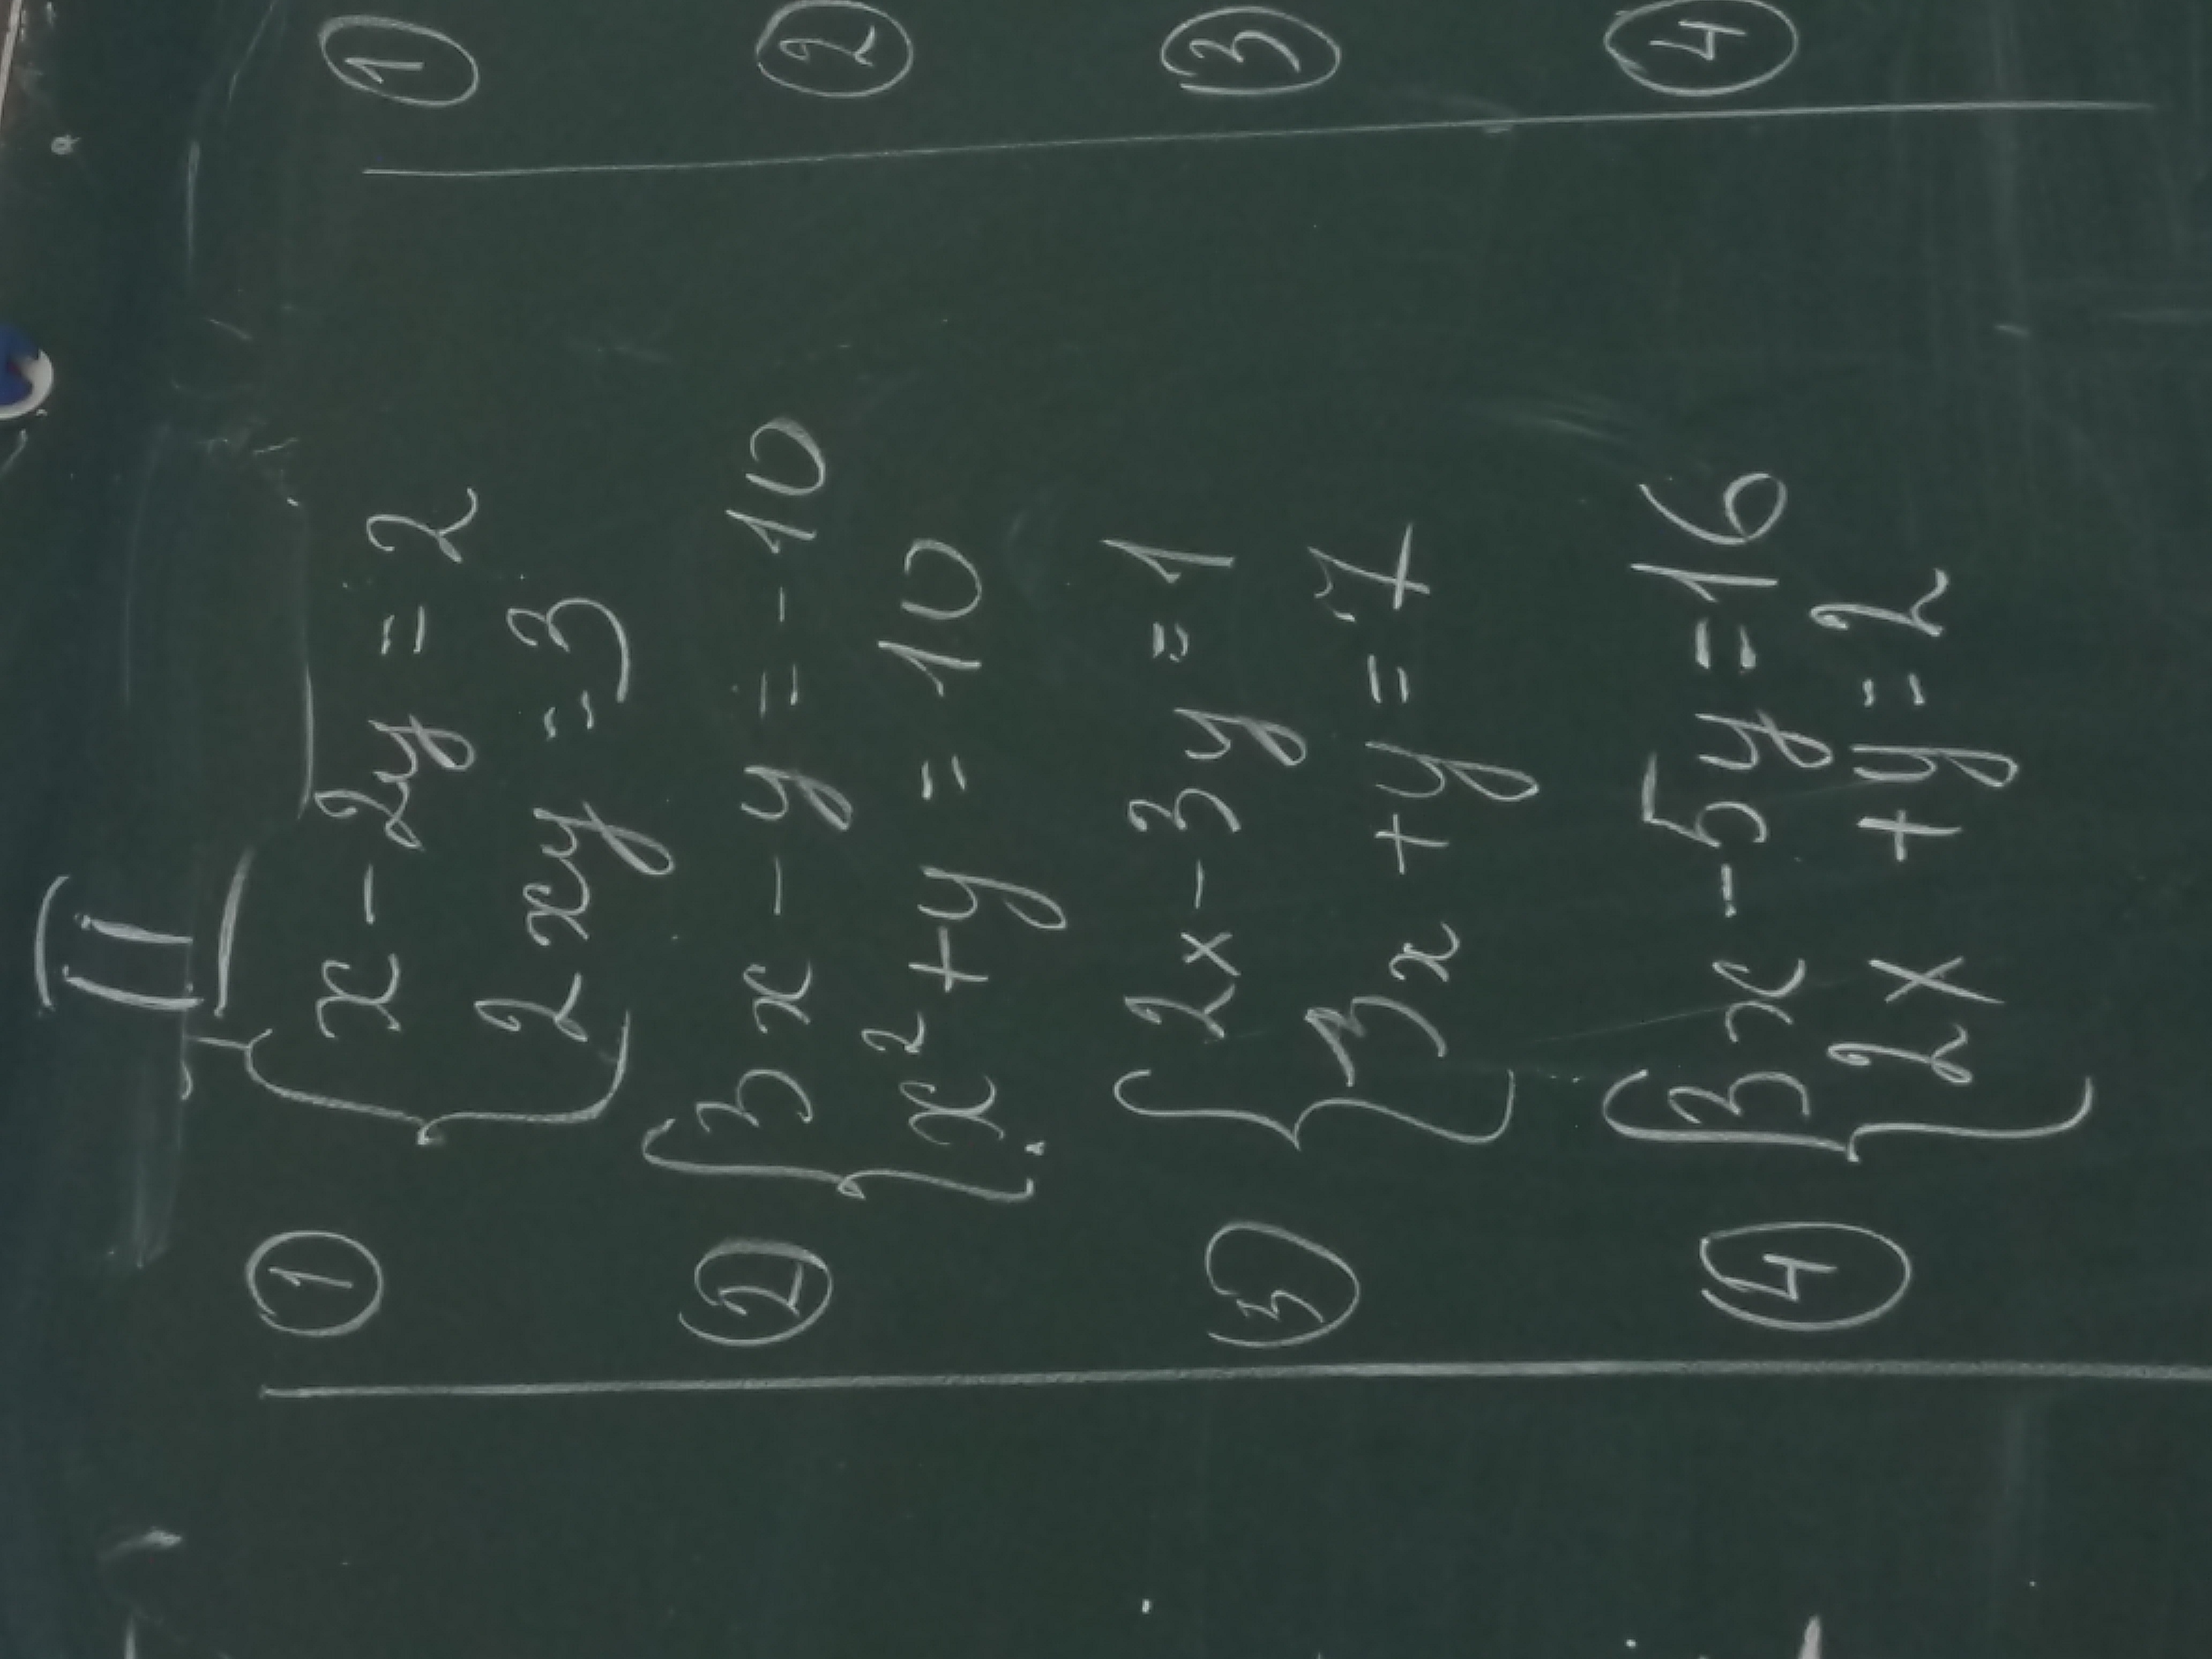 II
① x - 2y = 2
2xy = 3
② 3x - y = -10
x² + y = 10
③ 2x - 3y = 1
3x + y = 7
④ 3x - 5y = 16
2x + y = 2
①
②
③
④